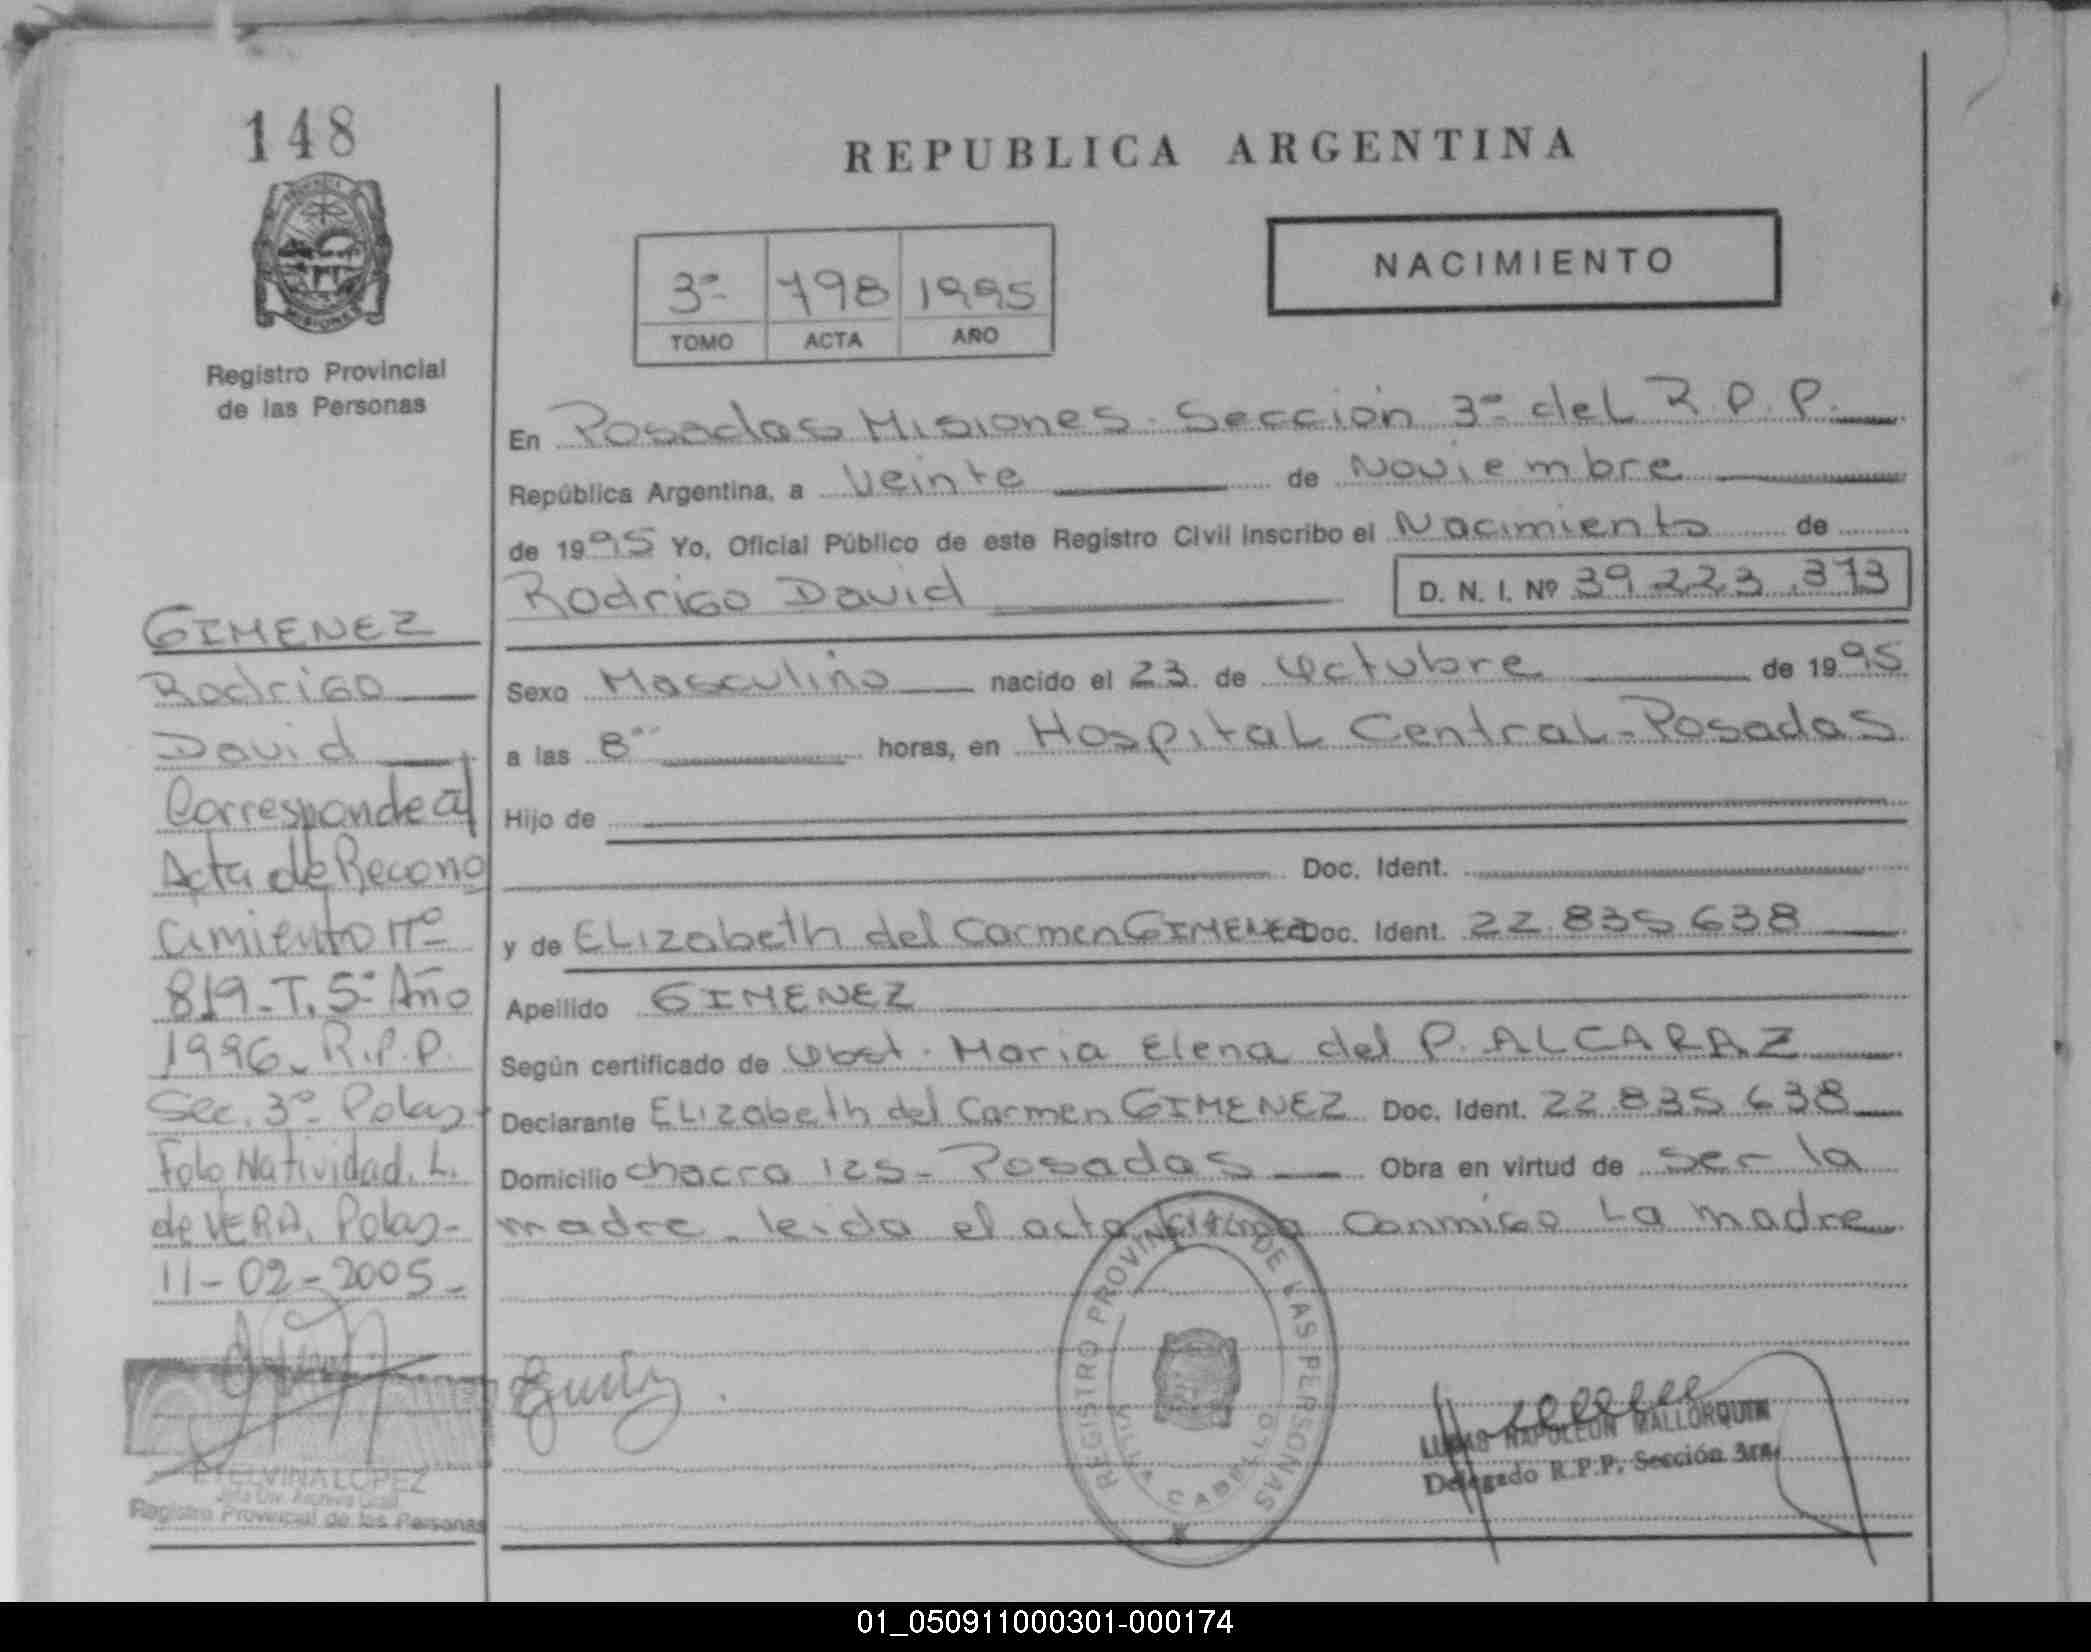 148
REPUBLICA ARGENTINA
NACIMIENTO
3ª 798 1995
TOMO ACTA AÑO
MISIONES
Registro Provincial
de las Personas
En Posadas Misiones - Sección 3ª del R.P.P.
República Argentina, a Veinte de Noviembre
de 1995 Yo, Oficial Público de este Registro Civil inscribo el Nacimiento de
Rodrigo David D. N. I. Nº 39.223.373
Sexo Masculino nacido el 23 de Octubre de 1995
a las 8 horas, en Hospital Central - Posadas
Hijo de
Doc. Ident.
y de Elizabeth del Carmen GIMENEZ Doc. Ident. 22.835.638
Apellido GIMENEZ
Según certificado de Obst. Maria Elena del P. ALCARAZ
Declarante Elizabeth del Carmen GIMENEZ Doc. Ident. 22.835.638
Domicilio chacra 125 - Posadas Obra en virtud de ser la
madre - leida el acta firma conmigo La madre
GIMENEZ
Rodrigo
David
Corresponde al
Acta de Recono
cimiento Nº
819 - T. 5º Año
1996. R.P.P.
Sec. 3º Pdas
Folo Natividad. L.
de VERA. Pdas -
11-02-2005 -
ETELVINA LOPEZ
Registro Provincial de las Personas
REGISTRO PROVINCIAL DE LAS PERSONAS
VILLA CABELLO
LUCAS NAPOLEON MALLORQUIN
Delegado R.P.P. Sección 3ra.
01_050911000301-000174